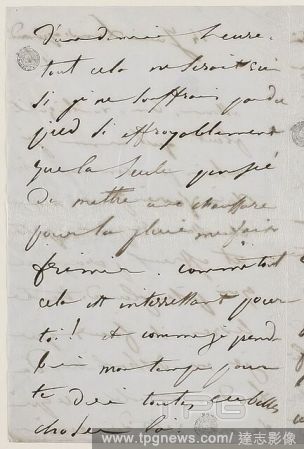 d'une demie heure.
tout cela ne serait rien
si je ne souffrai pas du
pied si effroyablement
que la seule pensée
de mettre une chaussure
pour la pluie me fait
frémir. comme tout
cela est interressant pour
toi! et comme je perds
bien mon temps pour
te dire toutes ces belles
choses là.
TPG
www.tpgnews.com/達志影像